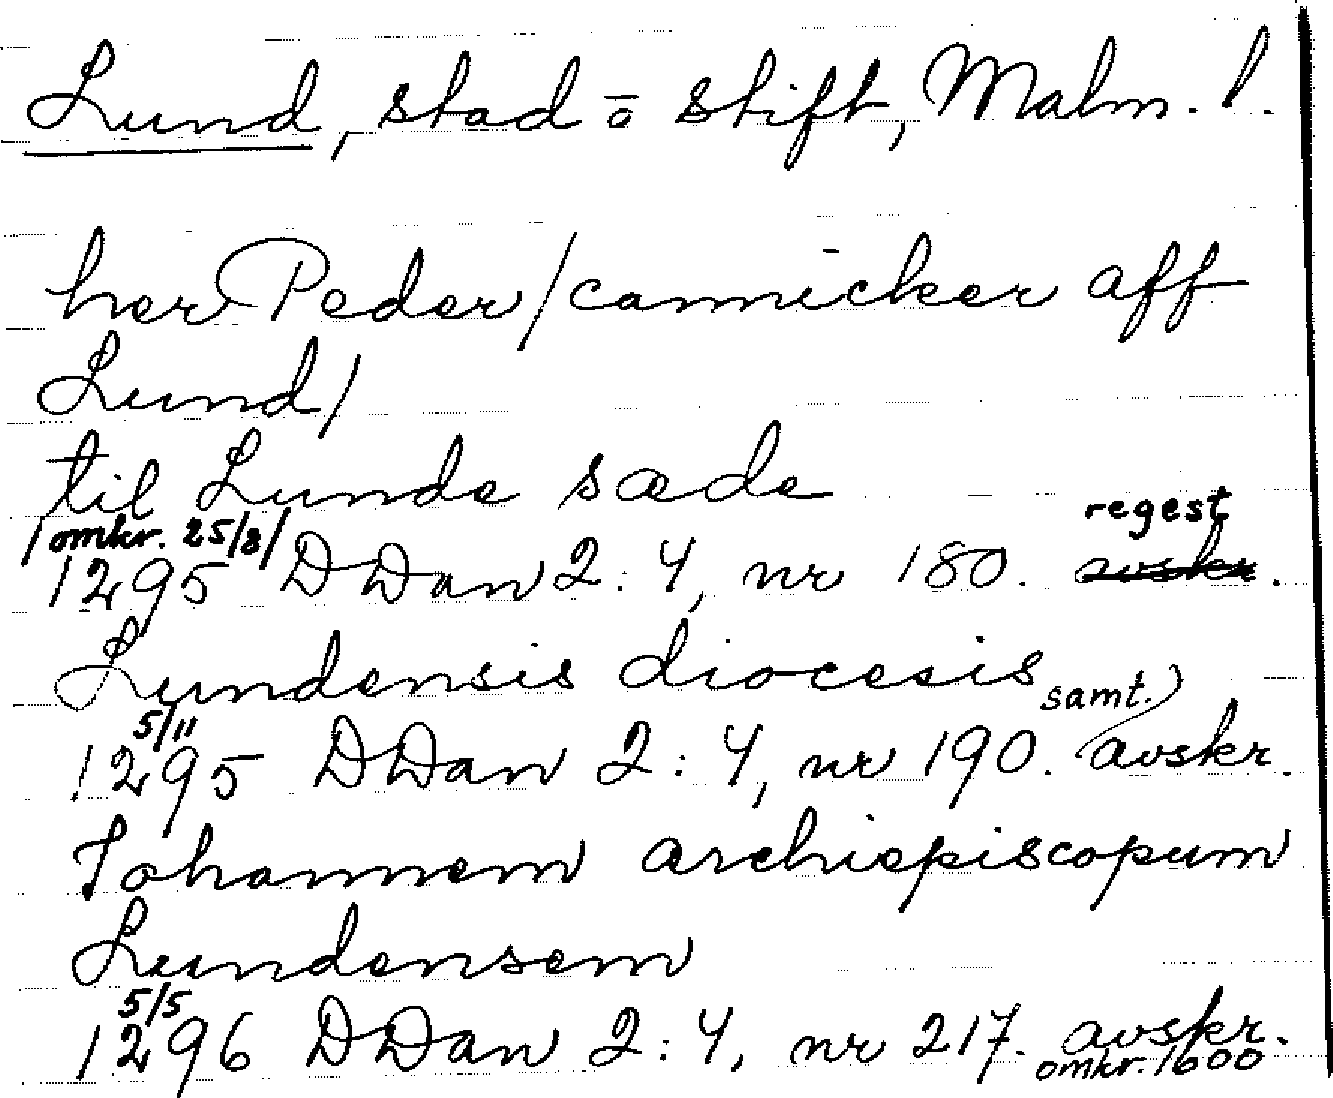 Lund, stad o stift, Malm. l.
her Peder/cannicker aff
Lund/
til Lunde sæde
/omkr. 25/8/
1295 DDan 2:4, nr 180. regest avskr.
Lundensis diocesis
5/11
1295 DDan 2:4, nr 190. samt. avskr.
Johannem archiepiscopum
Lundensem
5/5
1296 DDan 2:4, nr 217. avskr.
omkr. 1600